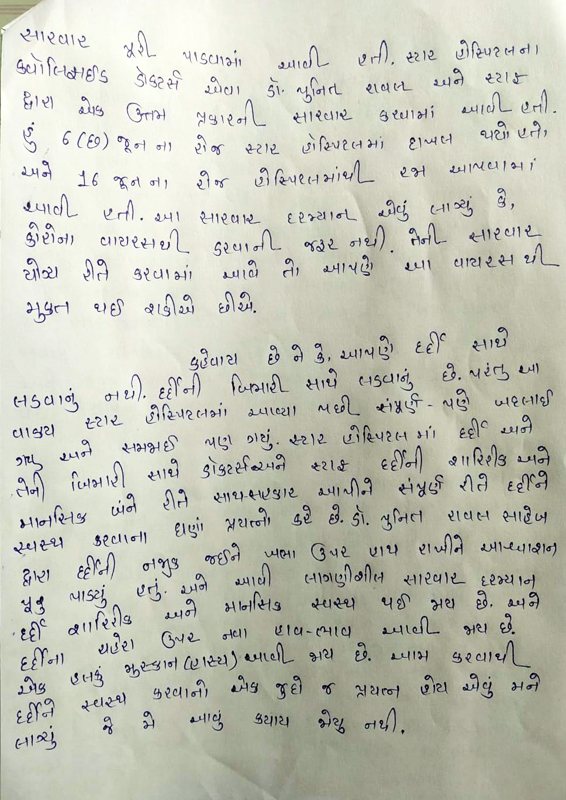 સારવાર પૂરી પાડવામાં આવી હતી. સ્ટાર હોસ્પિટલના
ક્વોલિફાઈડ ડોક્ટર્સ એવા ડૉ. પુનિત રાવલ અને સ્ટાફ
દ્વારા એક ઉત્તમ પ્રકારની સારવાર કરવામાં આવી હતી.
હું 6 (છ) જૂન ના રોજ સ્ટાર હોસ્પિટલમાં દાખલ થયો હતો,
અને 16 જૂન ના રોજ હોસ્પિટલમાંથી રજા આપવામાં
આવી હતી. આ સારવાર દરમ્યાન એવું લાગ્યું કે,
કોરોના વાયરસથી ડરવાની જરૂર નથી. તેની સારવાર
યોગ્ય રીતે કરવામાં આવે તો આપણે આ વાયરસ થી
મુક્ત થઈ શકીએ છીએ.
કહેવાય છે ને કે, આપણે દર્દી સાથે
લડવાનું નથી. દર્દીની બિમારી સાથે લડવાનું છે. પરંતુ આ
વાક્ય સ્ટાર હોસ્પિટલમાં આવ્યા પછી સંપૂર્ણ-પણે બદલાઈ
ગયુ અને સમજાઈ પણ ગયું. સ્ટાર હોસ્પિટલ માં દર્દી અને
તેની બિમારી સાથે ડોક્ટર્સ અને સ્ટાફ દર્દીની શારિરીક અને
માનસિક બંને રીતે સાથ-સહકાર આપીને સંપૂર્ણ રીતે દર્દીને
સ્વસ્થ કરવાના ઘણાં પ્રયત્નો કરે છે. ડૉ. પુનિત રાવલ સાહેબ
દ્વારા દર્દીની નજીક જઈને ખભા ઉપર હાથ રાખીને આશ્વાશન
પૂરુ પાડ્યું હતું. અને આવી લાગણીશીલ સારવાર દરમ્યાન
દર્દી શારિરીક અને માનસિક સ્વસ્થ થઈ જાય છે. અને
દર્દીના ચહેરા ઉપર નવા હાવ-ભાવ આવી જાય છે.
એક હલકું મુસ્કાન (હાસ્ય) આવી જાય છે. આમ કરવાથી
દર્દીને સ્વસ્થ કરવાનો એક જુદો જ પ્રયત્ન હોય એવું મને
લાગ્યું જે મે આવું ક્યાય જોયુ નથી.